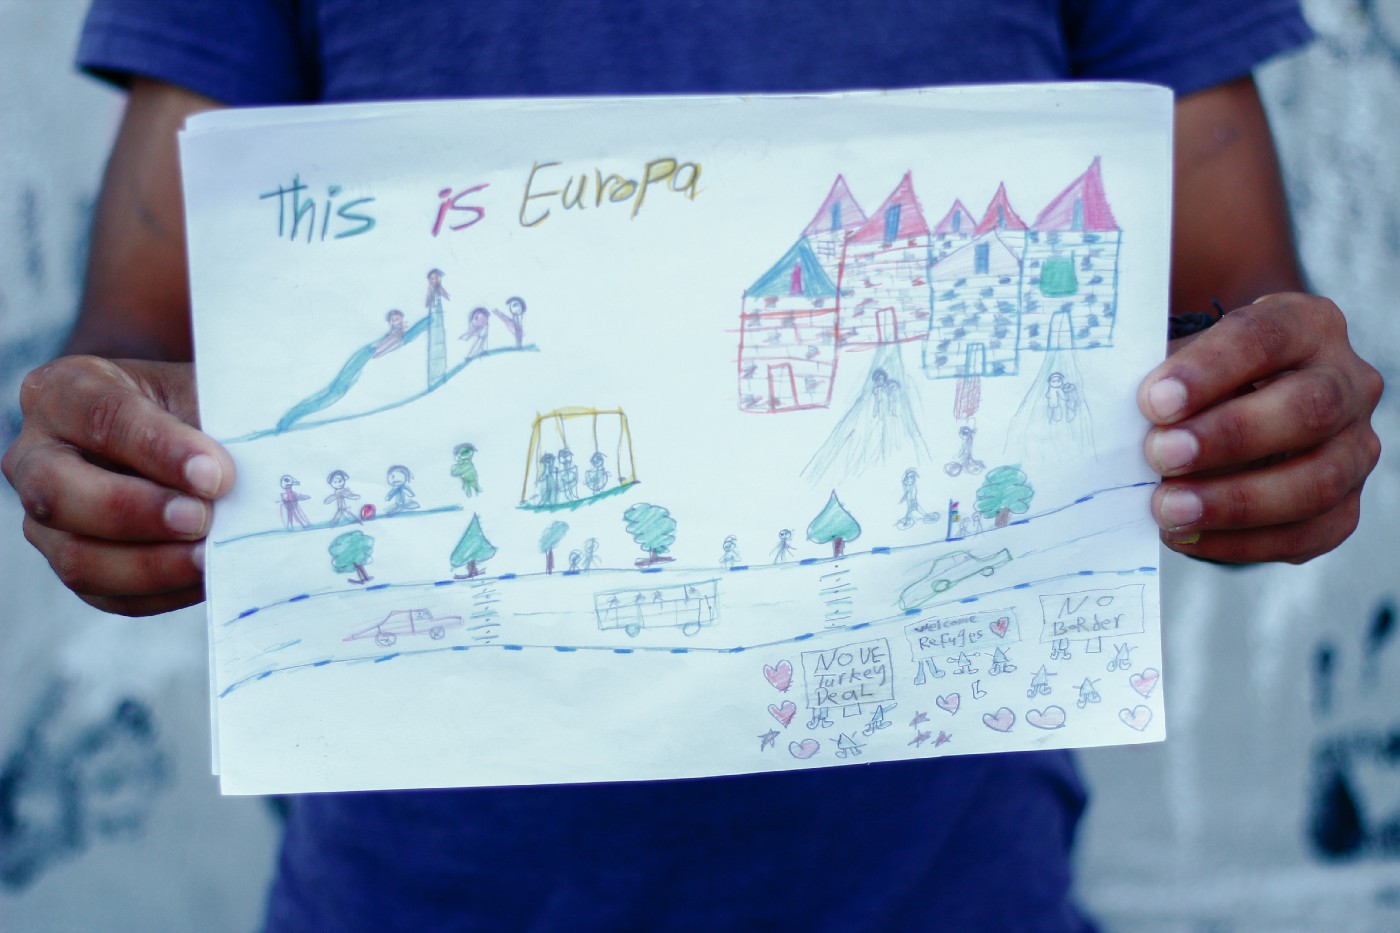 This is Europa
NO UE
Turkey
DeaL
welcome
Refuges
NO
BorDer